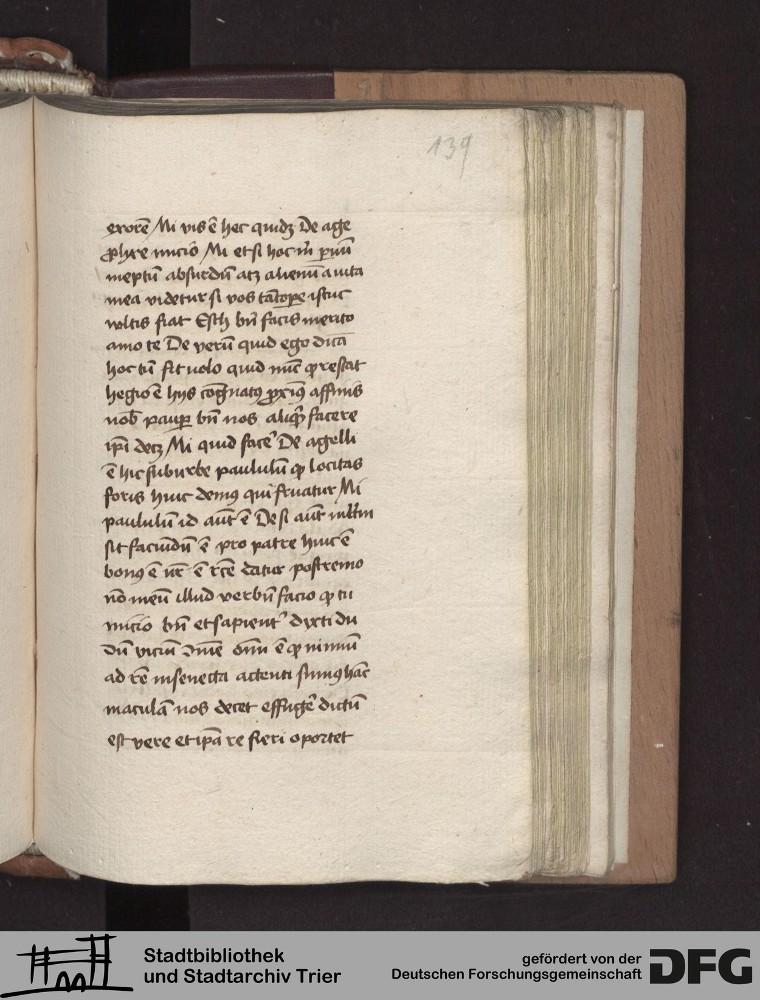 139
exorē Mi vis ē hec quidȝ De age
ꝓlyxe micio Mi etsi hoc m̄ ꝑuū
ineptū absurdū atȝ alienū a vita
mea videtur si vos tātope istuc
voltis fiat Esch bn̄ facis merito
amo te De verū quid ego dicā
hoc tū fit uolo quid nūc q̄ restat
hegio ē hijs cogͣnatꝯ ꝓxiꝯ affinis
nob̄ pauꝑ bn̄ nos aliqͥd facere
ip̄i decȝ Mi quid facˀe De agelli
ē hic suburbe paululū qͩ locitas
foris huic demꝯ qui fruatur Mi
paululū id aūt ē De si aūt multm̄
sit faciūdū ē pro patre huic ē
bonꝯ ē nr̄ ē rc̄e datur postremo
nō meū illud verbū facio qͩ tu
micio bn̄ et sapientˀ dyxti du
dū viciū ꝯmūe om̄i ē qͩ nimiū
ad rē in senecta attenti sumꝯ hāc
maculā nos decet effugˀe dictū
est vere et ip̄a re fieri oportet
Stadtbibliothek
und Stadtarchiv Trier
gefördert von der
Deutschen Forschungsgemeinschaft
DFG